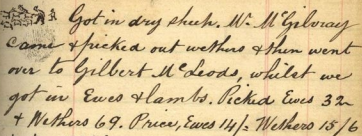 Got in dry sheep. Mr. McGilvray
came & picked out wethers & then went
over to Gilbert McLeods, whilst we
got in Ewes & lambs. Picked Ewes 32
& Wethers 69. Price, Ewes 14/= Wethers 15/6